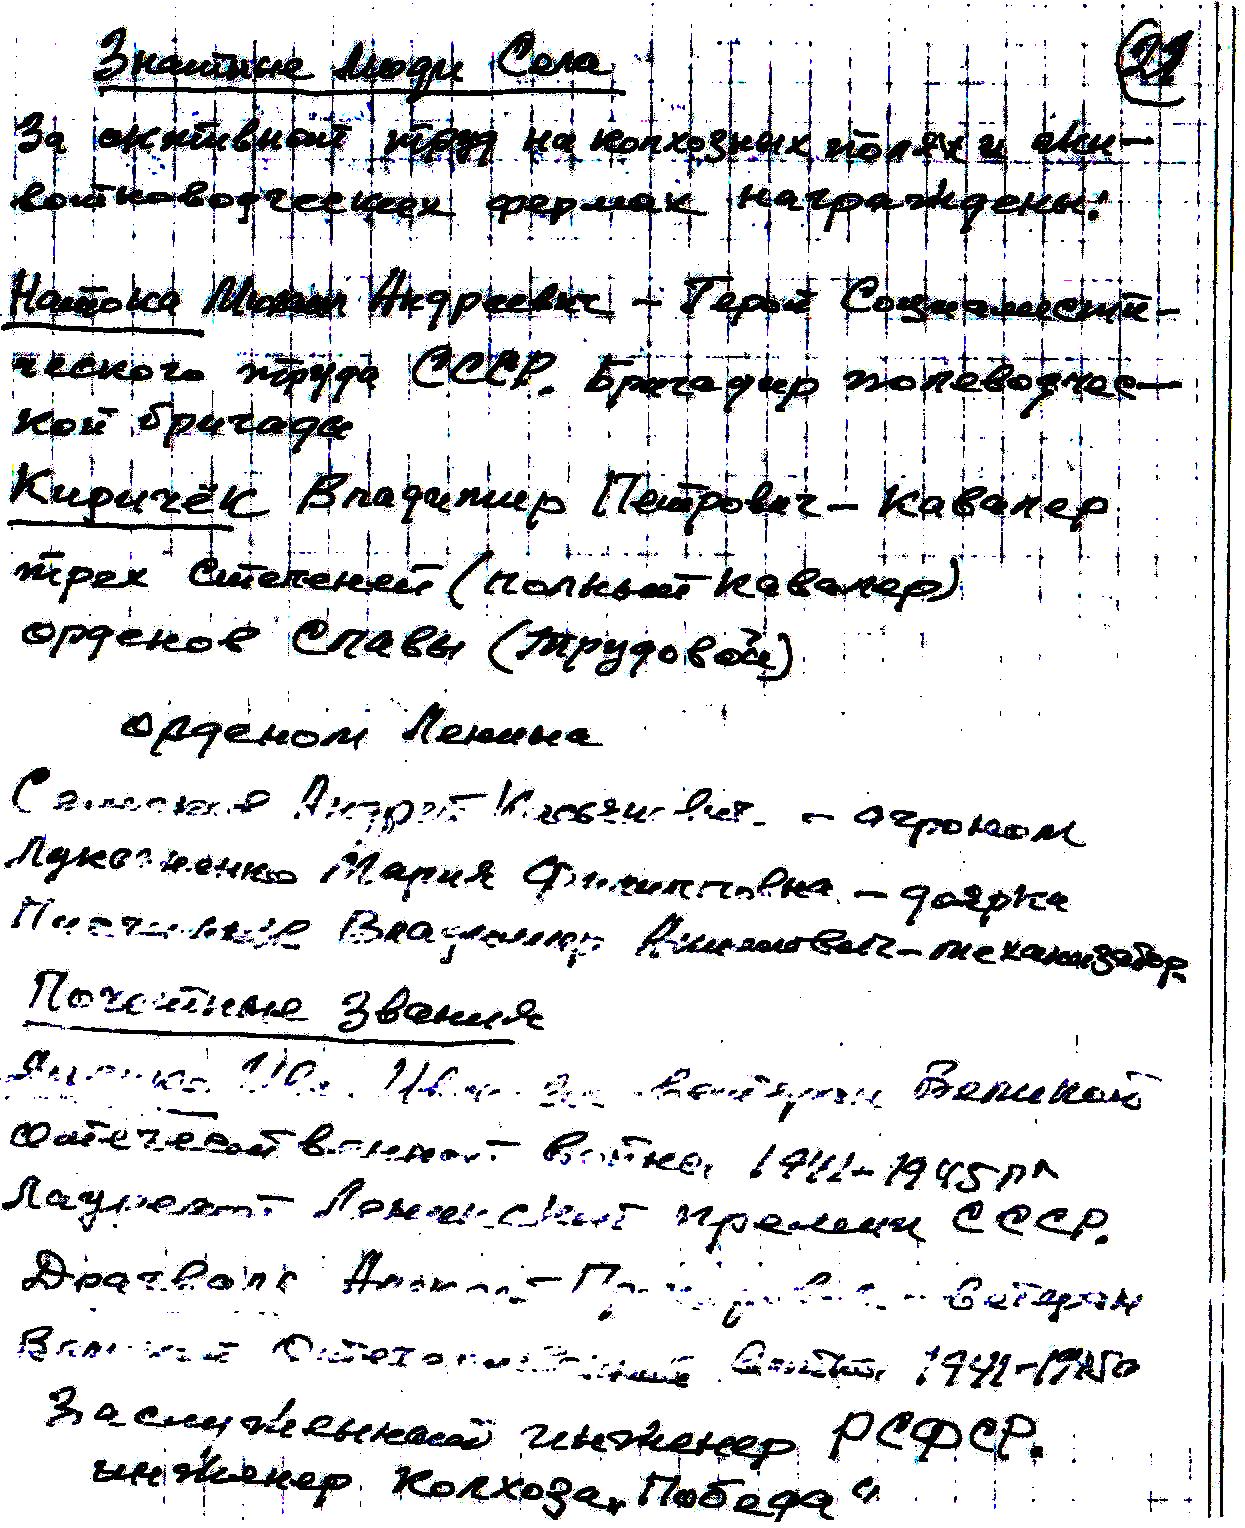 Знатные люди Села
22
За активный труд на колхозных полях и жи-
вотноводческих фермах награждены:
Натока Михаил Андреевич - Герой Социалисти-
ческого труда СССР. Бригадир полеводчес-
кой бригады
Киричёк Владимир Петрович - Кавалер
трех степеней (полный кавалер)
орденов Славы (трудовой)
орденом Ленина
Андрей - агроном
Мария Филипповна - доярка
Владимир - механизатор.
Почетные звания
ветеран Великой
Отечественной войны 1941-1945 гг
Лауреат Ленинской премии СССР.
- ветеран
Великой Отечественной войны 1941-1945
Заслуженный инженер РСФСР.
инженер колхоза „Победа"